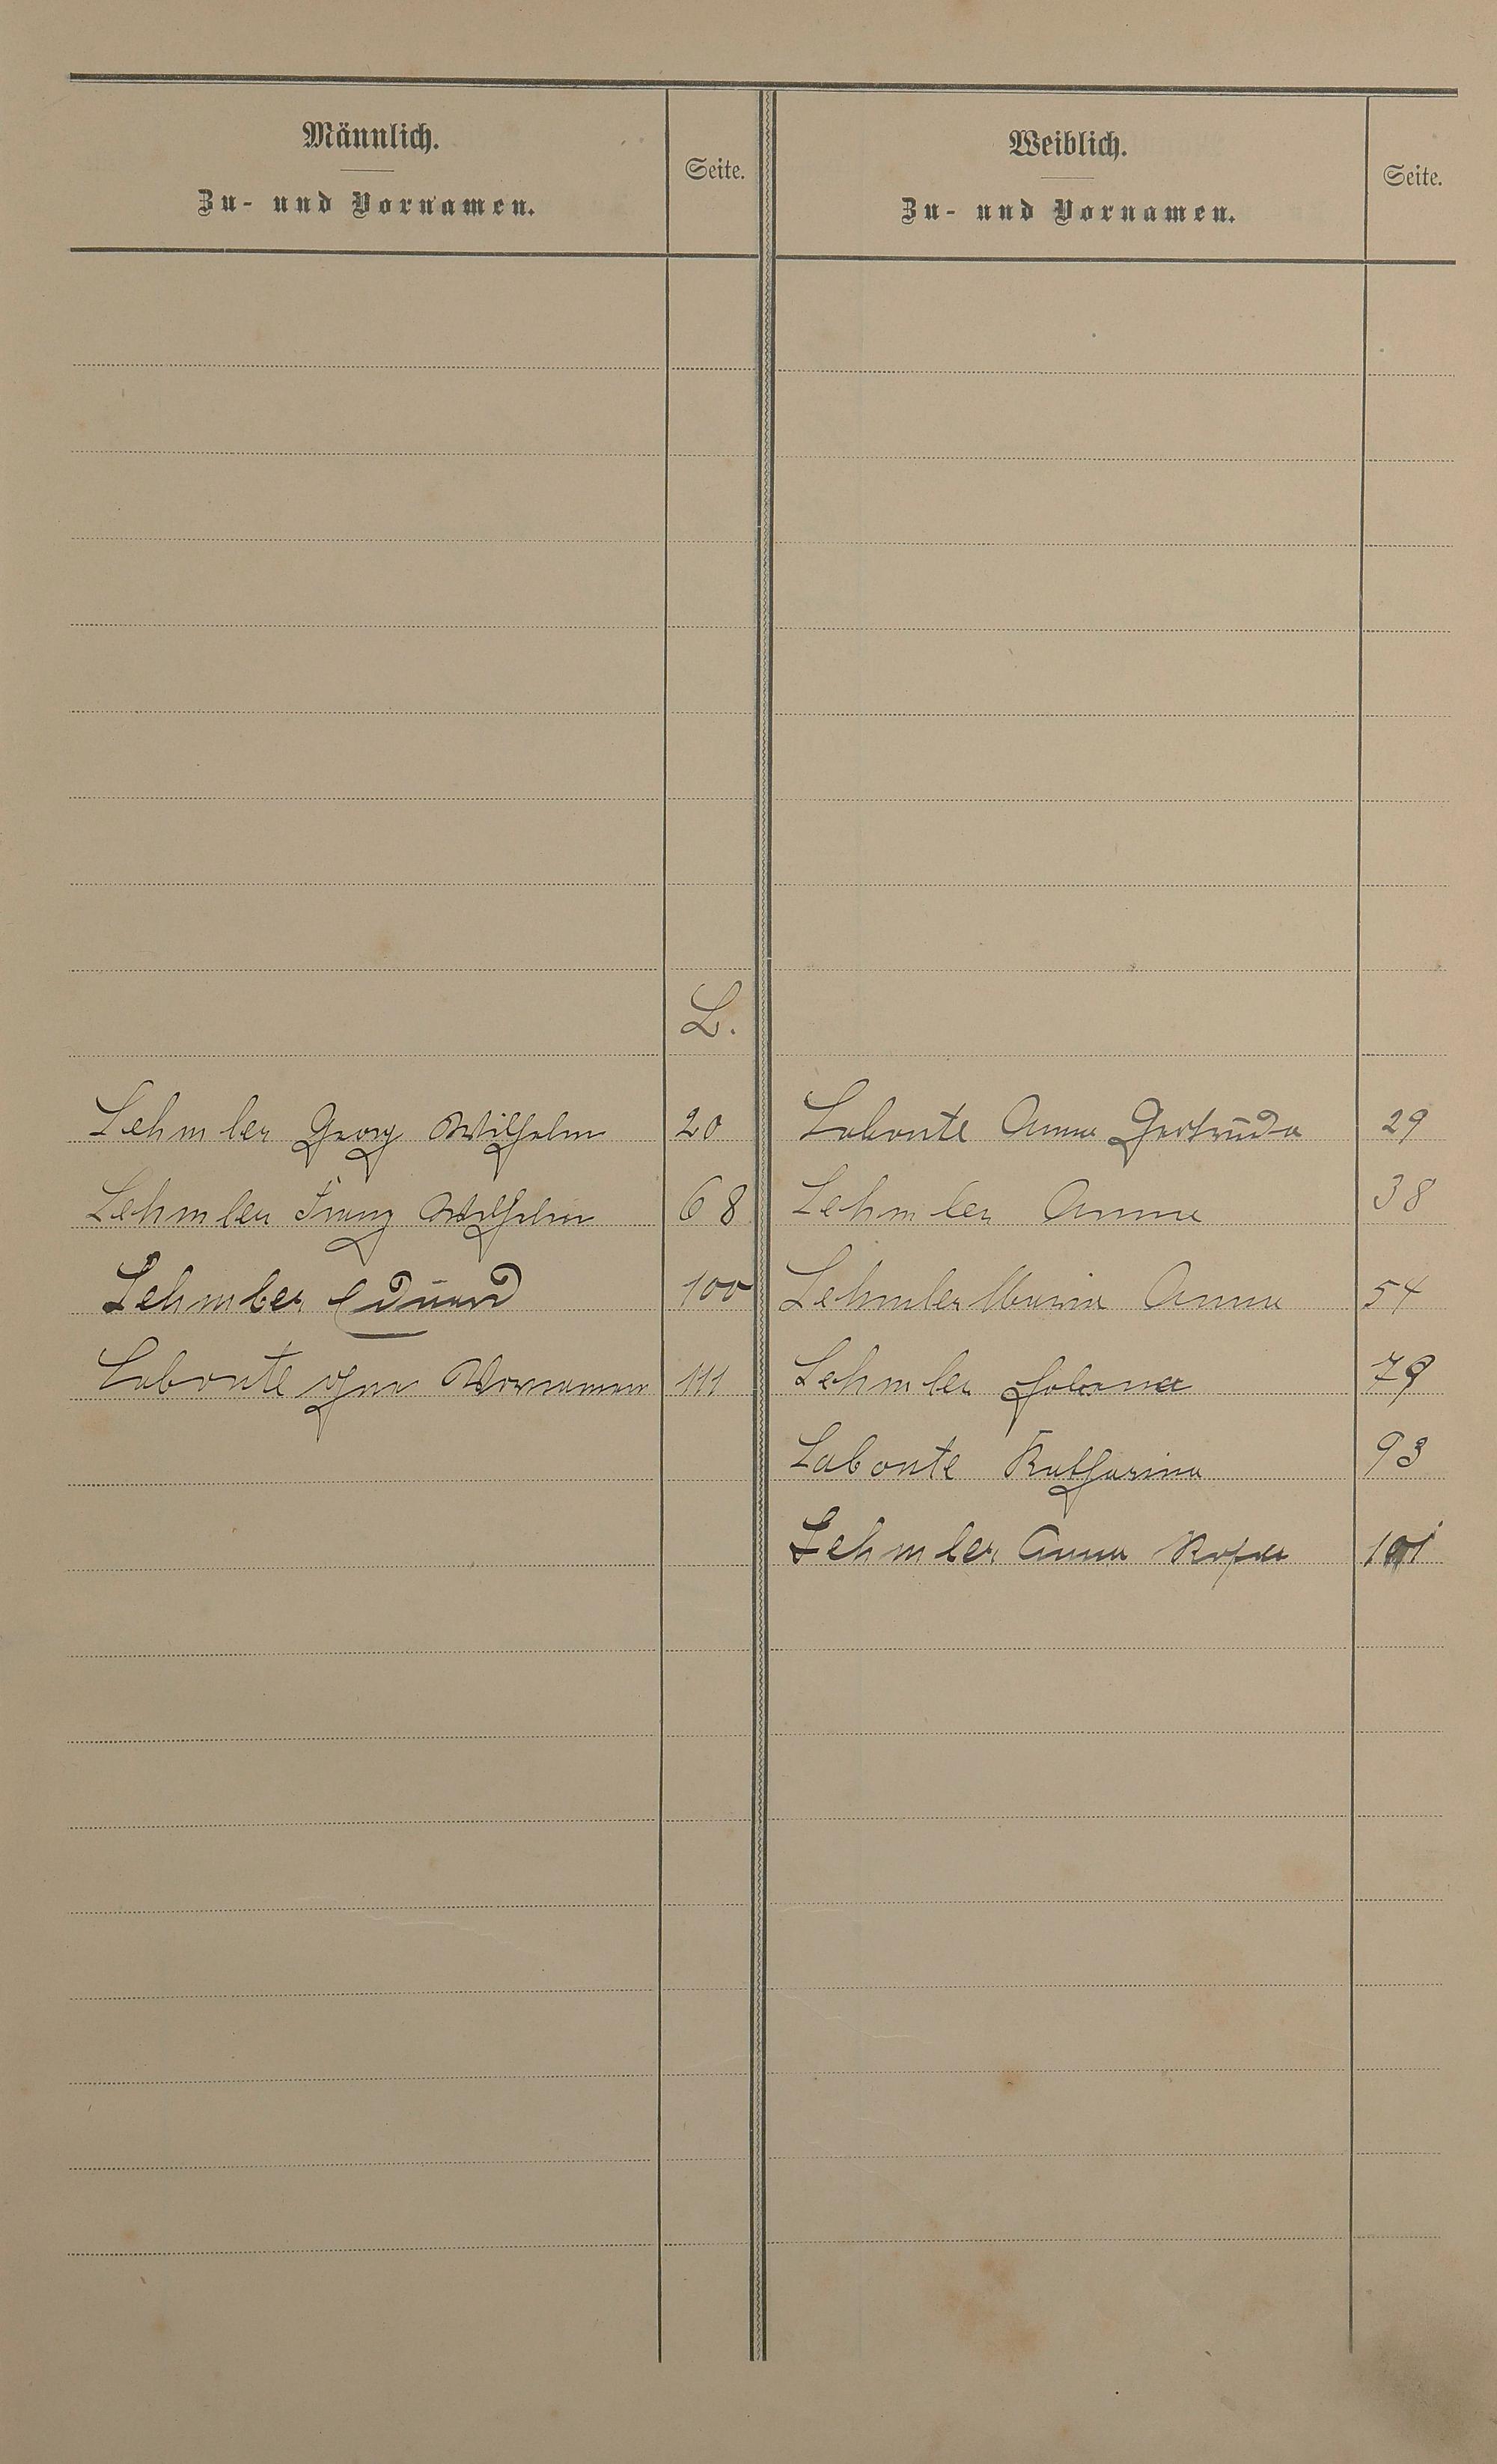 Männlich.
Zu- und Vornamen.
Seite.
Weiblich.
Zu- und Vornamen.
Seite.
L.
Lehmler Georg Wilhelm 20 Labonte Anna Gertruda 29
Lehmler Franz Wilhelm 68 Lehmler Anna 38
Lehmler Eduard 100 Lehmler Maria Anna 54
Labonte ohne Vornamen 111 Lehmler Helena 79
Labonte Katharina 93
Lehmler Anna Rosa 101